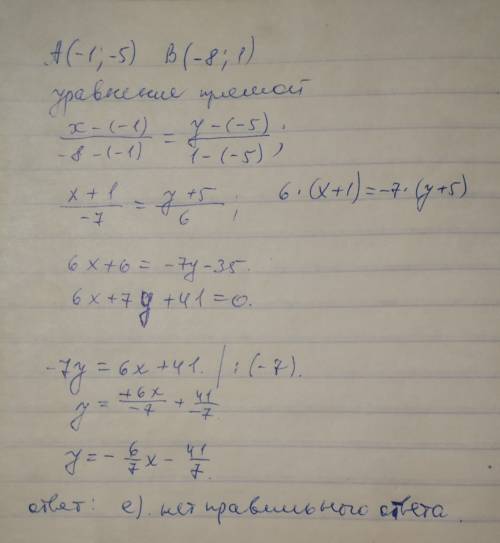 A(-1; -5) B(-8; 1)
уравнение прямой
x-(-1)/-8-(-1) = y-(-5)/1-(-5);
x+1/-7 = y+5/6; 6·(x+1)=-7·(y+5)
6x+6 = -7y-35.
6x+7y+41=0.
-7y = 6x+41. | : (-7).
y = +6x/-7 + 41/-7.
y = - 6/7 x - 41/7.
ответ: е). нет правильного ответа.